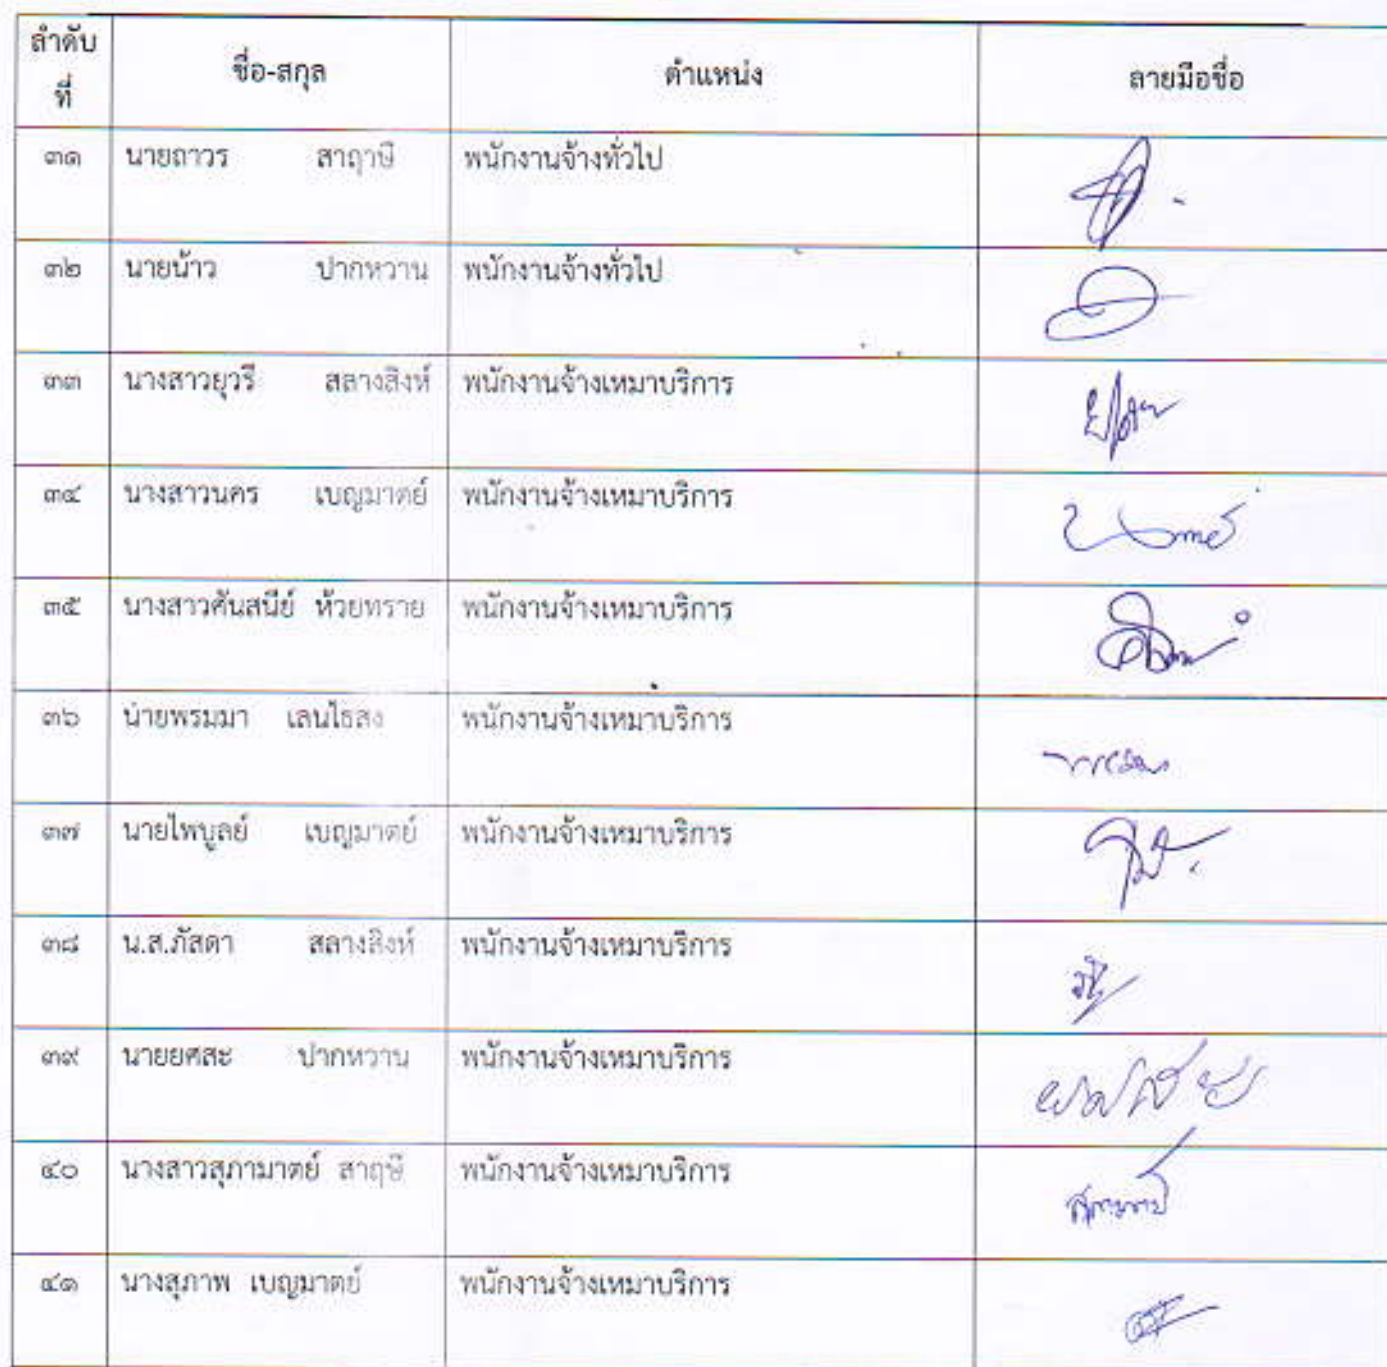 ลำดับที่ ชื่อ-สกุล ตำแหน่ง ลายมือชื่อ
๓๑ นายถาวร สาฤาษี พนักงานจ้างทั่วไป
๓๒ นายน้าว ปากหวาน พนักงานจ้างทั่วไป
๓๓ นางสาวยุวรี สลางสิงห์ พนักงานจ้างเหมาบริการ
๓๔ นางสาวนคร เบญมาตย์ พนักงานจ้างเหมาบริการ
๓๕ นางสาวศันสนีย์ ห้วยทราย พนักงานจ้างเหมาบริการ
๓๖ นายพรมมา เลนไธสง พนักงานจ้างเหมาบริการ
๓๗ นายไพบูลย์ เบญมาตย์ พนักงานจ้างเหมาบริการ
๓๘ น.ส.ภัสดา สลางสิงห์ พนักงานจ้างเหมาบริการ
๓๙ นายยศสะ ปากหวาน พนักงานจ้างเหมาบริการ
๔๐ นางสาวสุภามาตย์ สาฤษี พนักงานจ้างเหมาบริการ
๔๑ นางสุภาพ เบญมาตย์ พนักงานจ้างเหมาบริการ